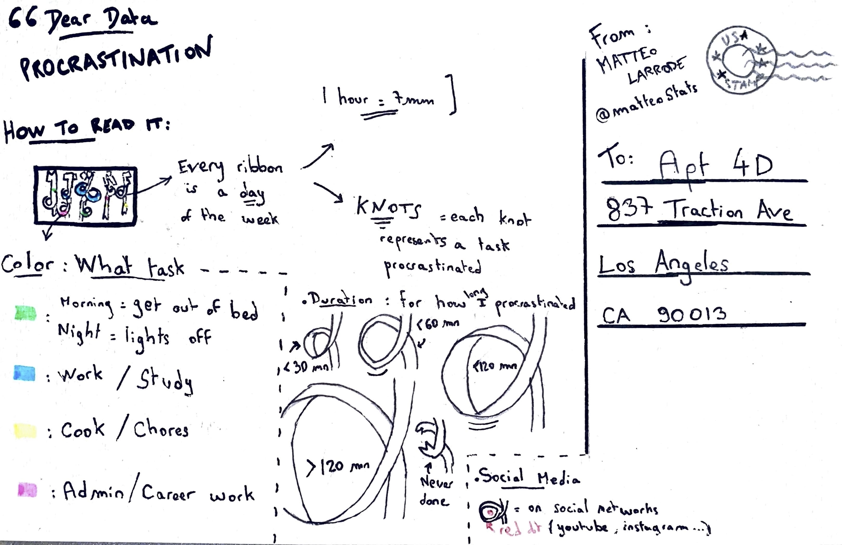 66 Dear Data
PROCRASTINATION
HOW TO READ IT:
Every ribbon
is a day
of the week
1 hour = 7mm ]
KNOTS = each knot
represents a task
procrastinated
Color : What task
Morning = get out of bed
Night = lights off
: Work / Study
: Cook / Chores
: Admin / Career work
. Duration : for how long I procrastinated
<30 mn
<60 mn
<120 mn
>120 mn
Never
done
. Social Media
= on social networks
red dot (youtube, instagram...)
From :
MATTEO
LARRODE
@matteoStats
USA
STAMP
To: Apt 4D
837 Traction Ave
Los Angeles
CA 90013